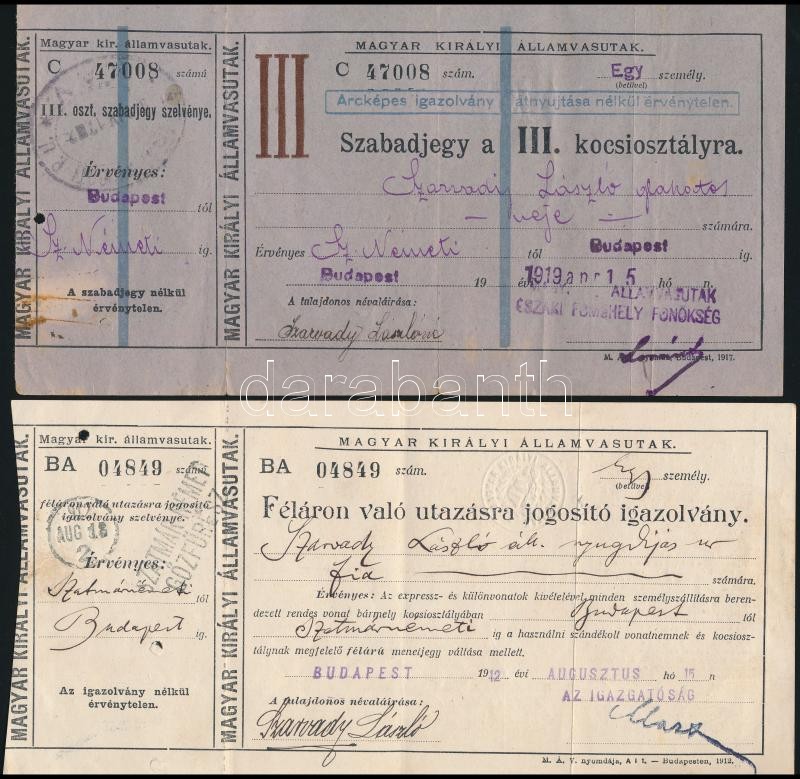 Magyar kir. államvasutak.
C 47008 számú
III. oszt. szabadjegy szelvénye.
Érvényes:
Budapest tól
Sz Németi ig.
A szabadjegy nélkül
érvénytelen.
MAGYAR KIRÁLYI ÁLLAMVASUTAK.
MAGYAR KIRÁLYI ÁLLAMVASUTAK.
III
MAGYAR KIRÁLYI ÁLLAMVASUTAK.
C 47008 szám.
Egy személy.
(betüvel)
Arcképes igazolvány átnyujtása nélkül érvénytelen.
Szabadjegy a III. kocsiosztályra.
Szarvady László
— neje —
számára.
Érvényes Sz Németi tól Budapest ig.
Budapest 19 évi 1919 apr 15 hó n.
ÁLLAMVASUTAK
ÉSZAKI FŐMŰHELY FŐNÖKSÉG
A tulajdonos névaláirása:
Szarvady Lászlóné
Budapest, 1917.
darabanth
Magyar kir. államvasutak.
BA 04849 számú
féláron való utazásra jogositó
igazolvány szelvénye.
AUG 16
Érvényes:
Szatmárnémeti tól
Budapest ig.
Az igazolvány nélkül
érvénytelen.
SZATMÁRNÉMETI
GŐZFŰRÉSZ
MAGYAR KIRÁLYI ÁLLAMVASUTAK.
MAGYAR KIRÁLYI ÁLLAMVASUTAK.
MAGYAR KIRÁLYI ÁLLAMVASUTAK.
BA 04849 szám.
Egy személy.
(betüvel)
Féláron való utazásra jogositó igazolvány.
Szarvady László áll. nyugdíjas ur
fia
számára.
Érvényes: Az expressz- és különvonatok kivételével minden személyszállitásra beren-
dezett rendes vonat bármely kocsiosztályában Budapest tól
Szatmárnémeti ig a használni szándékolt vonatnemnek és kocsiosz-
tálynak megfelelő félárú menetjegy váltása mellett.
BUDAPEST 1912 évi AUGUSZTUS hó 15 n
AZ IGAZGATÓSÁG
A tulajdonos névaláirása:
Szarvady László
M. Á. V. nyomdája, A i t. — Budapesten, 1912.